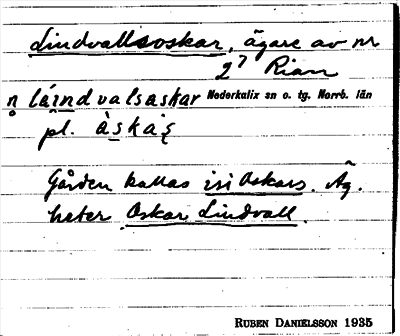 Lindvallsoskar, ägare av nr
27 Rian
n låindvalsaskar Nederkalix sn o. tg. Norrb. län
pl. àskàς
Gården kallas isi Oskars. Äg.
heter Oskar Lindvall.
RUBEN DANIELSSON 1935